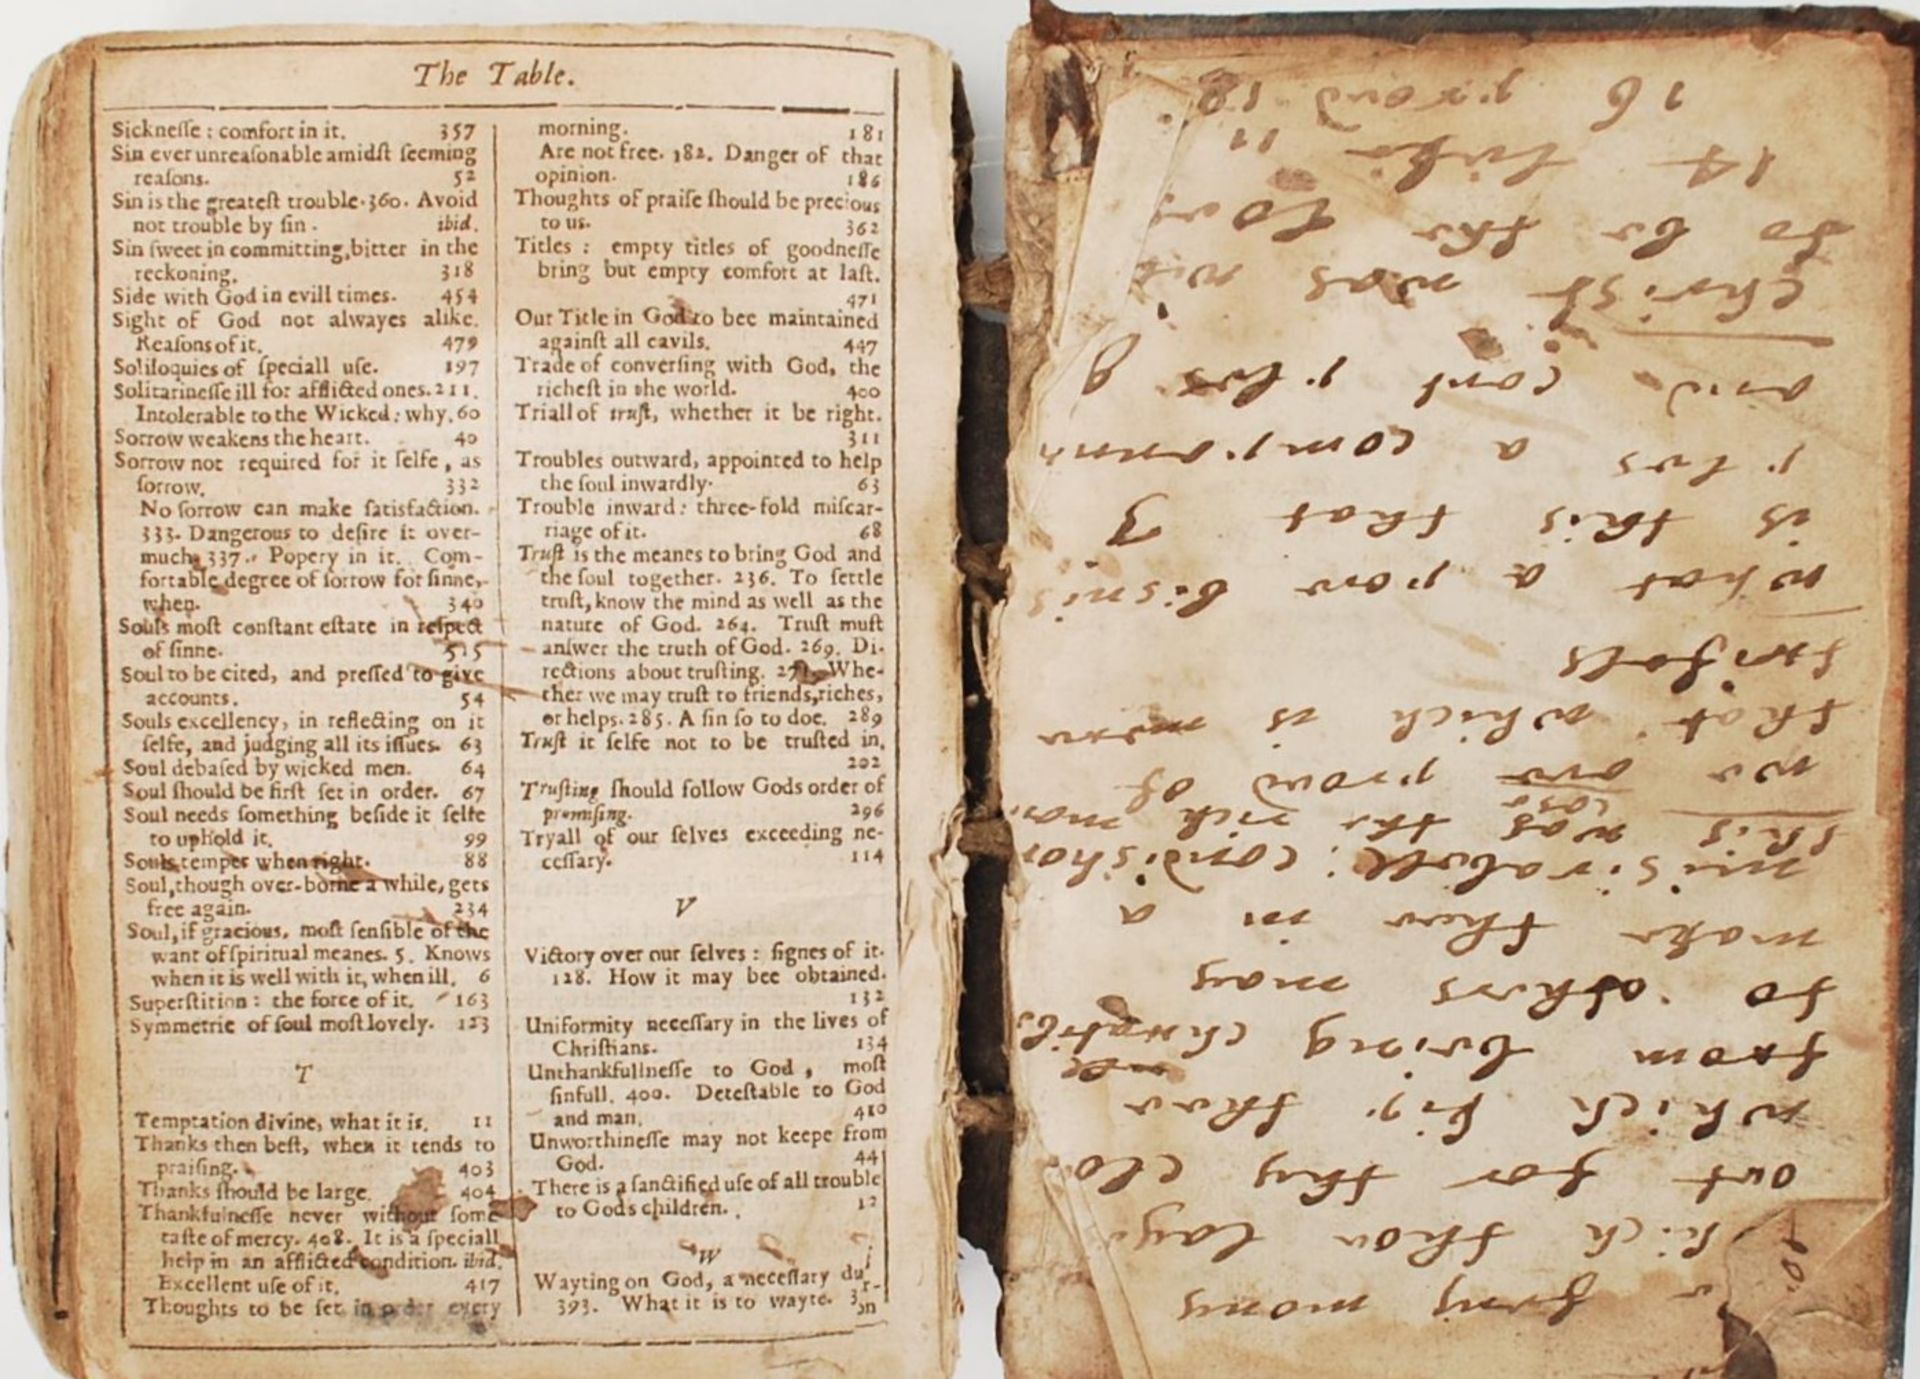 The Table.
Sicknesse : comfort in it. 357
Sin ever unreasonable amidst seeming
reasons. 52
Sin is the greatest trouble. 360. Avoid
not trouble by sin. ibid.
Sin sweet in committing, bitter in the
reckoning. 318
Side with God in evill times. 454
Sight of God not alwayes alike.
Reasons of it. 479
Soliloquies of speciall use. 197
Solitarinesse ill for afflicted ones. 211.
Intolerable to the Wicked : why. 60
Sorrow weakens the heart. 40
Sorrow not required for it selfe, as
sorrow. 332
No sorrow can make satisfaction.
333. Dangerous to desire it over-
much. 337. Popery in it. Com-
fortable degree of sorrow for sinne,
when. 340
Souls most constant estate in respect
of sinne. 515
Soul to be cited, and pressed to give
accounts. 54
Souls excellency, in reflecting on it
selfe, and judging all its issues. 63
Soul debased by wicked men. 64
Soul should be first set in order. 67
Soul needs something beside it selfe
to uphold it. 99
Souls temper when right. 88
Soul, though over-borne a while, gets
free again. 234
Soul, if gracious, most sensible of the
want of spiritual meanes. 5. Knows
when it is well with it, when ill. 6
Superstition : the force of it. 163
Symmetrie of soul most lovely. 123
T
Temptation divine, what it is. 11
Thanks then best, when it tends to
praising. 403
Thanks should be large. 404
Thankfulnesse never without some
taste of mercy. 408. It is a speciall
help in an afflicted condition. ibid.
Excellent use of it. 417
Thoughts to be set in order every
morning. 181
Are not free. 182. Danger of that
opinion. 186
Thoughts of praise should be precious
to us. 362
Titles : empty titles of goodnesse
bring but empty comfort at last.
471
Our Title in God to bee maintained
against all cavils. 447
Trade of conversing with God, the
richest in the world. 400
Triall of trust, whether it be right.
311
Troubles outward, appointed to help
the soul inwardly. 63
Trouble inward : three-fold miscar-
riage of it. 68
Trust is the meanes to bring God and
the soul together. 236. To settle
trust, know the mind as well as the
nature of God. 264. Trust must
answer the truth of God. 269. Di-
rections about trusting. 271. Whe-
ther we may trust to friends, riches,
or helps. 285. A sin so to doe. 289
Trust it selfe not to be trusted in.
202
Trusting should follow Gods order of
promising. 296
Tryall of our selves exceeding ne-
cessary. 114
V
Victory over our selves : signes of it.
128. How it may bee obtained.
132
Uniformity necessary in the lives of
Christians. 134
Unthankfullnesse to God, most
sinfull. 400. Detestable to God
and man. 410
Unworthinesse may not keepe from
God. 44
There is a sanctified use of all trouble
to Gods children. 12
W
Wayting on God, a necessary du
393. What it is to wayte.
mony
hich thou lays
out for thy clo
which thee
from being all
so others may
make thee in a
misirabell condishon
this was the rich mans case
we are proud of
that which is
what a por bisnis
is this that I
ples a
and cant ples g
Christ was
so be the
14 luke 11
16 prov 18